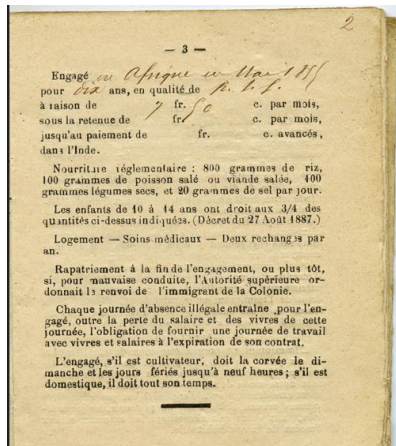 2
— 3 —
Engagé en Afrique en Mai 1855
pour dix ans, en qualité de
à raison de 7 fr. 50 c. par mois,
sous la retenue de fr. c. par mois,
jusqu'au paiement de fr. c. avancés,
dans l'Inde.
Nourriture réglementaire : 800 grammes de riz,
100 grammes de poisson salé ou viande salée, 100
grammes légumes secs, et 20 grammes de sel par jour.
Les enfants de 10 à 14 ans ont droit aux 3/4 des
quantités ci-dessus indiquées. (Décret du 27 Août 1887.)
Logement — Soins médicaux — Deux rechanges par
an.
Rapatriement à la fin de l'engagement, ou plus tôt,
si, pour mauvaise conduite, l'Autorité supérieure or-
donnait le renvoi de l'immigrant de la Colonie.
Chaque journée d'absence illégale entraîne pour l'en-
gagé, outre la perte du salaire et des vivres de cette
journée, l'obligation de fournir une journée de travail
avec vivres et salaires à l'expiration de son contrat.
L'engagé, s'il est cultivateur, doit la corvée le di-
manche et les jours fériés jusqu'à neuf heures ; s'il est
domestique, il doit tout son temps.